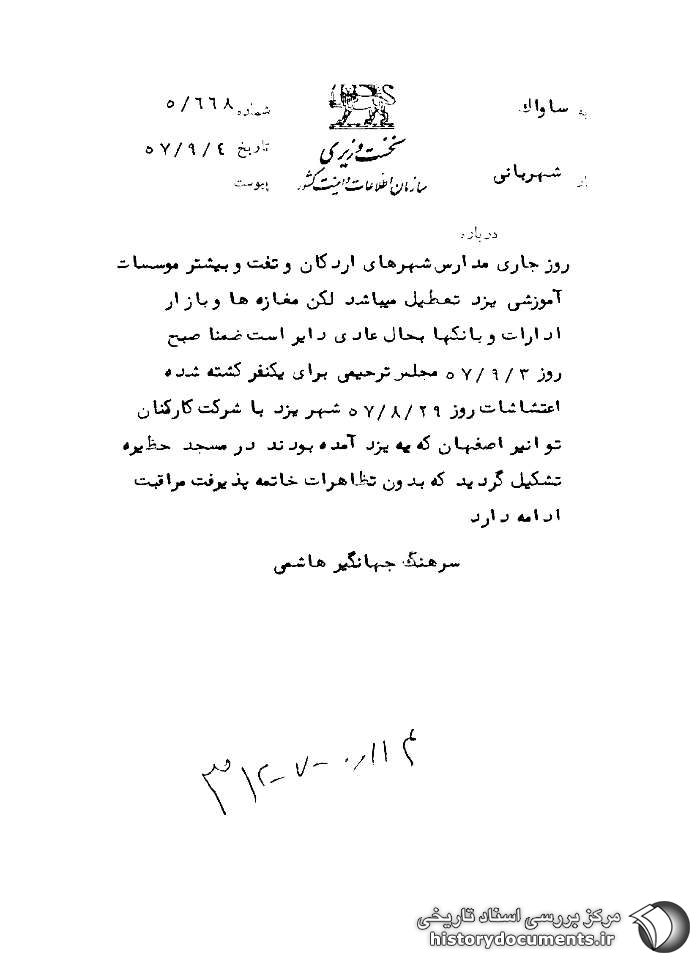 به ساواك
شماره ۵/۶۶۸
از شهربانی
تاریخ ۵۷/۹/۴
پیوست
نخست وزیری
سازمان اطلاعات و امنیت کشور
درباره
روز جاری مدارس شهرهای اردکان و تفت و بیشتر موسسات
آموزشی یزد تعطیل میباشد لکن مغازه ها و بازار
ادارات و بانکها بحال عادی دایر است ضمنا صبح
روز ۵۷/۹/۳ مجلس ترحیمی برای یکنفر کشته شده
اعتشاشات روز ۵۷/۸/۲۹ شهر یزد با شرکت کارکنان
توانیر اصفهان که یه یزد آمده بودند در مسجد حظیره
تشکیل گردید که بدون تظاهرات خاتمه پذیرفت مراقبت
ادامه دارد
سرهنگ جهانگیر هاشمی
مرکز بررسی اسناد تاریخی
historydocuments.ir